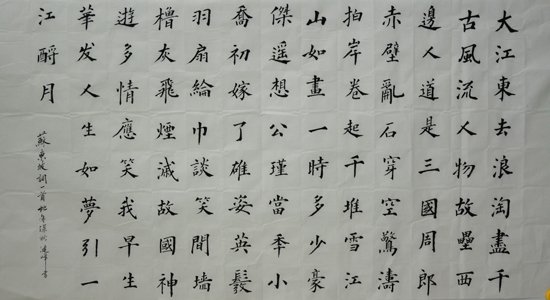 大江東去浪淘盡千
古風流人物故壘西
邊人道是三國周郎
赤壁亂石穿空驚濤
拍岸卷起千堆雪江
山如畫一時多少豪
傑遥想公瑾當秊小
喬初嫁了雄姿英髮
羽扇綸巾談笑間墙
櫓灰飛煙滅故國神
遊多情應笑我早生
華发人生如夢引一
江酹月
蘇東坡詞一首